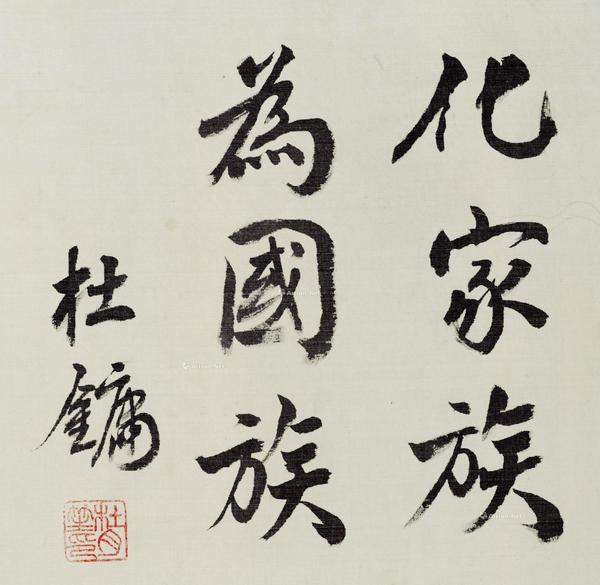 化家族
為國族
杜鏞